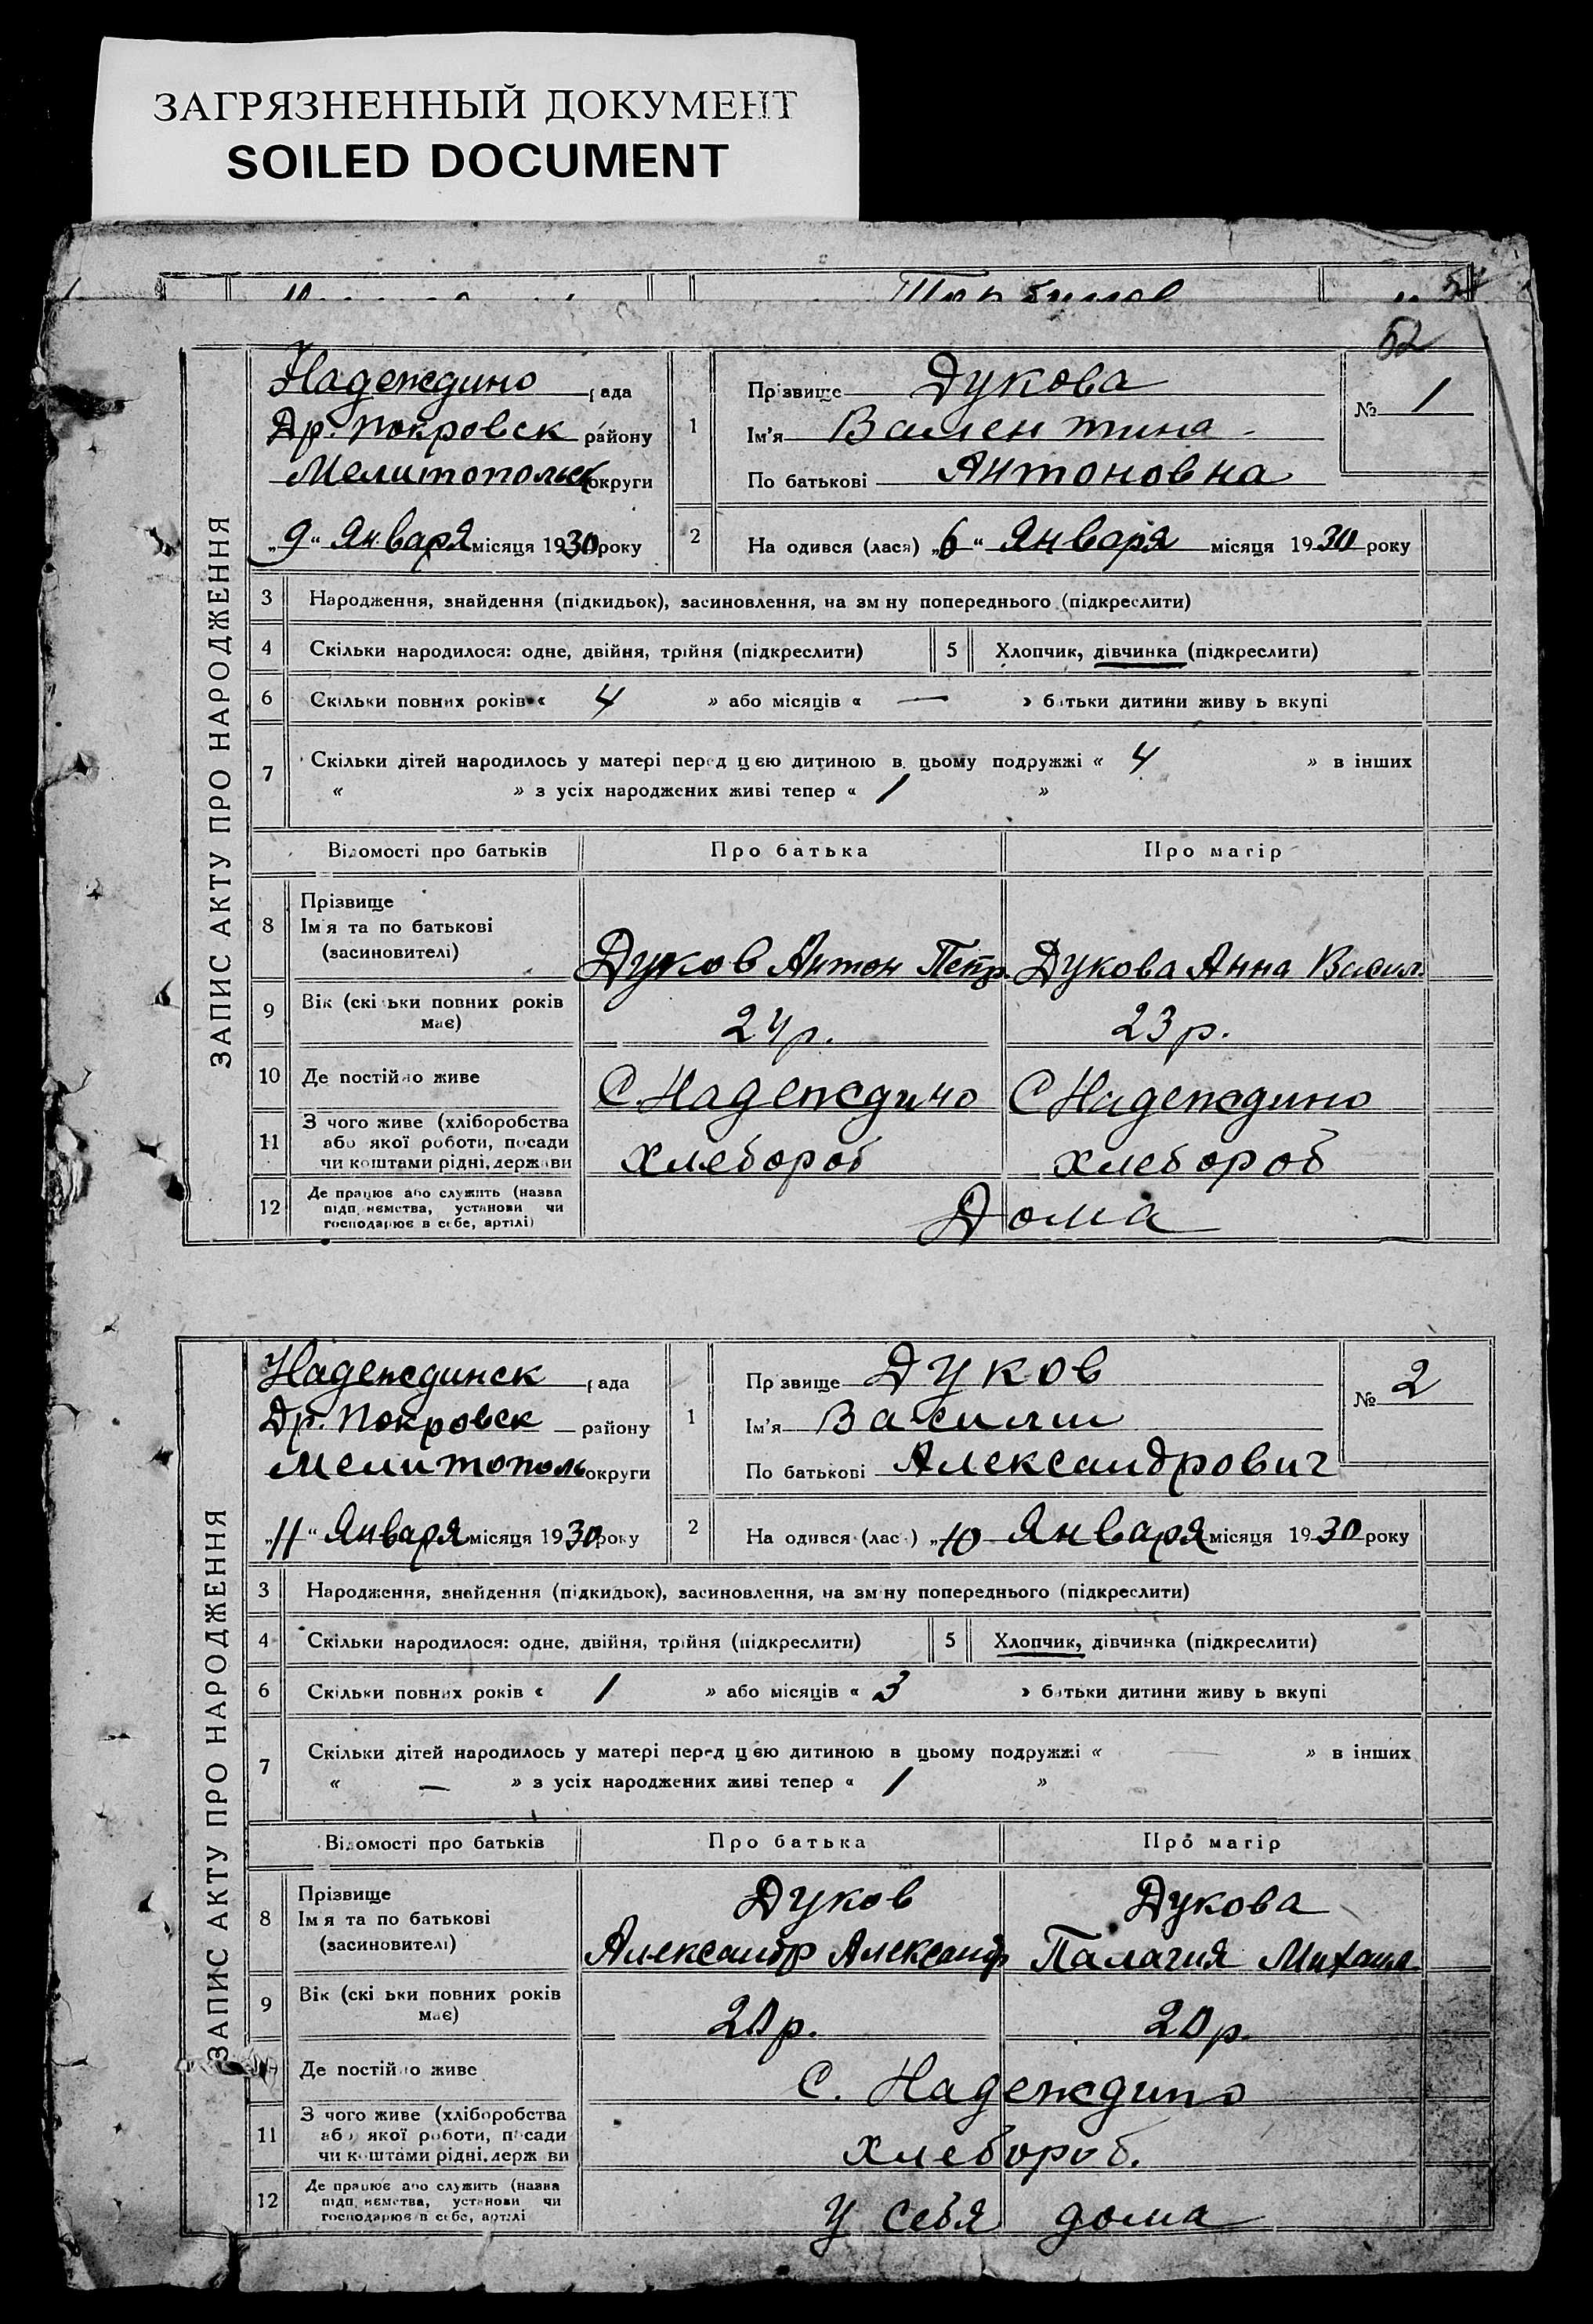 ЗАГРЯЗНЕННЫЙ ДОКУМЕНТ
SOILED DOCUMENT
52
ЗАПИС АКТУ ПРО НАРОДЖЕННЯ
Надеждино рада
Др. Покровск району
Мелитопольск округи
„9“ Января місяця 1930 року
1
Прізвище Дукова
Ім'я Валентина
По батькові Антоновна
№ 1
2
На одився (лася) „6“ Января місяця 1930 року
3 Народження, знайдення (підкидьок), засиновлення, на зм ну попереднього (підкреслити)
4 Скільки народилося: одне, двійня, трійня (підкреслити)
5 Хлопчик, дівчинка (підкреслити)
6 Скільки повних років « 4 » або місяців « — » батьки дитини живу ь вкупі
7 Скільки дітей народилось у матері перед цею дитиною в цьому подружжі « 4 » в інших
« » з усіх народжених живі тепер « 1 »
Відомості про батьків Про батька Про матір
8 Прізвище
Ім'я та по батькові
(засиновителі)
Дуков Антон Петр. Дукова Анна Васил.
9 Вік (скі ьки повних років
має)
24 р. 23 р.
10 Де постійно живе С. Надеждино С Надеждино
11 З чого живе (хліборобства
або якої роботи, посади
чи коштами рідні, держави
хлебороб хлебороб
12 Де працює або служить (назва
підп иємства, установи чи
господарює в себе, артілі)
Дома
ЗАПИС АКТУ ПРО НАРОДЖЕННЯ
Надеждинск рада
Др. Покровск району
Мелитополь округи
„11“ Января місяця 1930 року
1
Пр звище Дуков
Ім'я Василий
По батькові Александрович
№ 2
2
На одився (лас ) „10 Января місяця 1930 року
3 Народження, знайдення (підкидьок), засиновлення, на зм ну попереднього (підкреслити)
4 Скільки народилося: одне, двійня, трійня (підкреслити)
5 Хлопчик, дівчинка (підкреслити)
6 Скільки повних років « 1 » або місяців « 3 » батьки дитини живу ь вкупі
7 Скільки дітей народилось у матері перед цею дитиною в цьому подружжі « — » в інших
« — » з усіх народжених живі тепер « 1 »
Відомості про батьків Про батька Про матір
8 Прізвище
Ім'я та по батькові
(засиновителі)
Дуков Дукова
Александр Александр Палагия Михаил.
9 Вік (скі ьки повних років
має)
20 р. 20 р.
Де постій о живе С. Надеждино
11 З чого живе (хліборобства
або якої роботи, посади
чи коштами рідні, держ ви
хлебороб.
12 Де працює або служить (назва
підп иємства, установи чи
господарює в себе, артілі
У себя дома